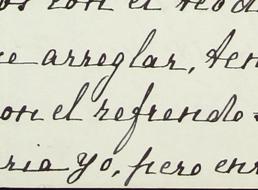 os con el
arreglar, ten
on el refrendo
ria yo, pero en